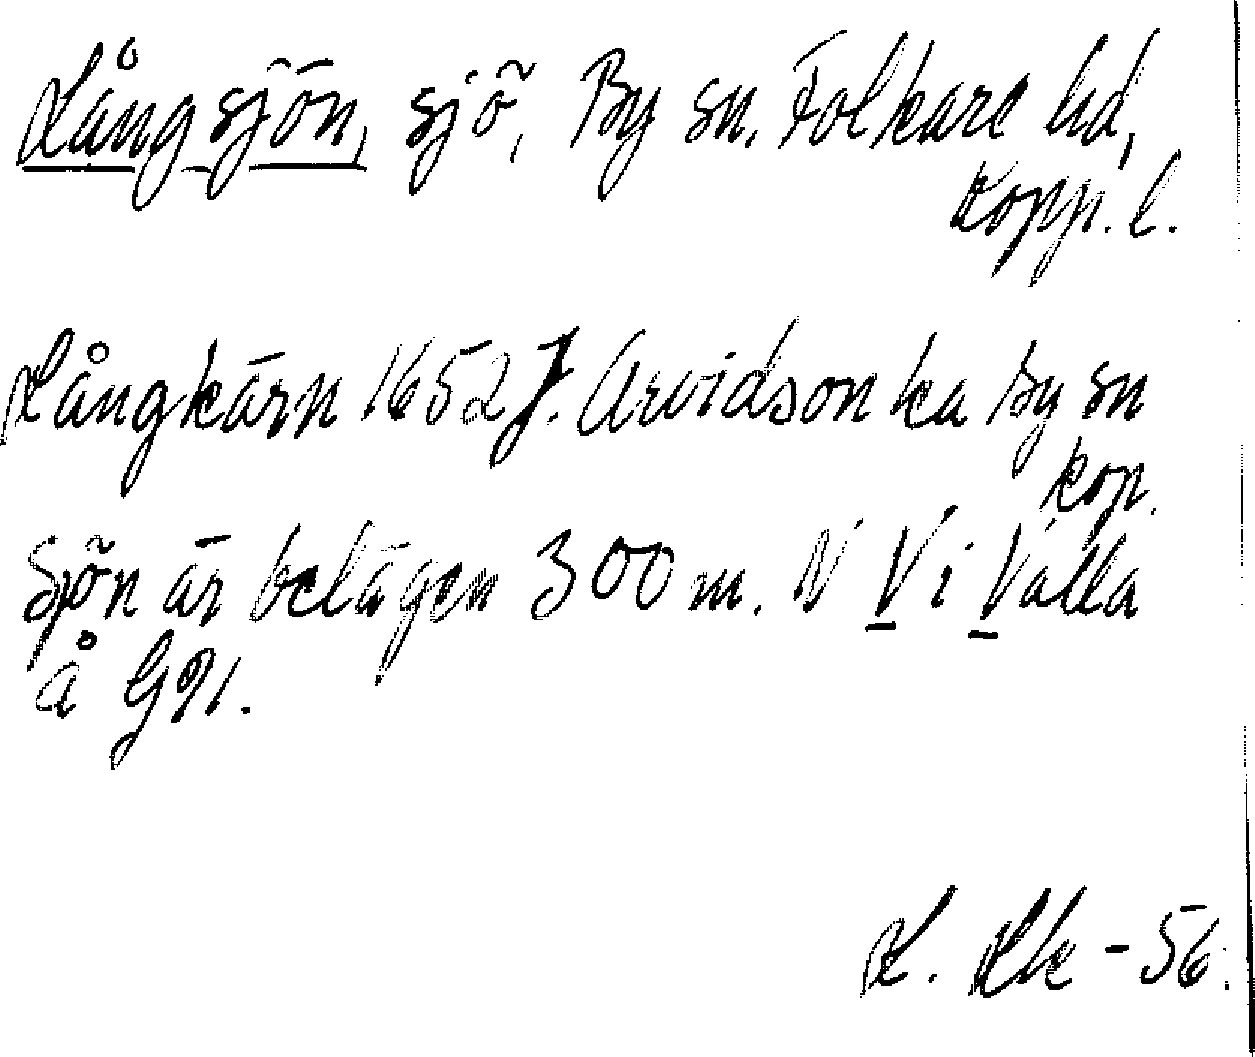 Långsjön, sjö, By sn. Folkare hd,
Kopp. l.
Långkärn 1652 J. Arvidson ka By sn
kop.
Sjön är belägen 300 m. N V i Valla
å G91.
L. Lk - 56.